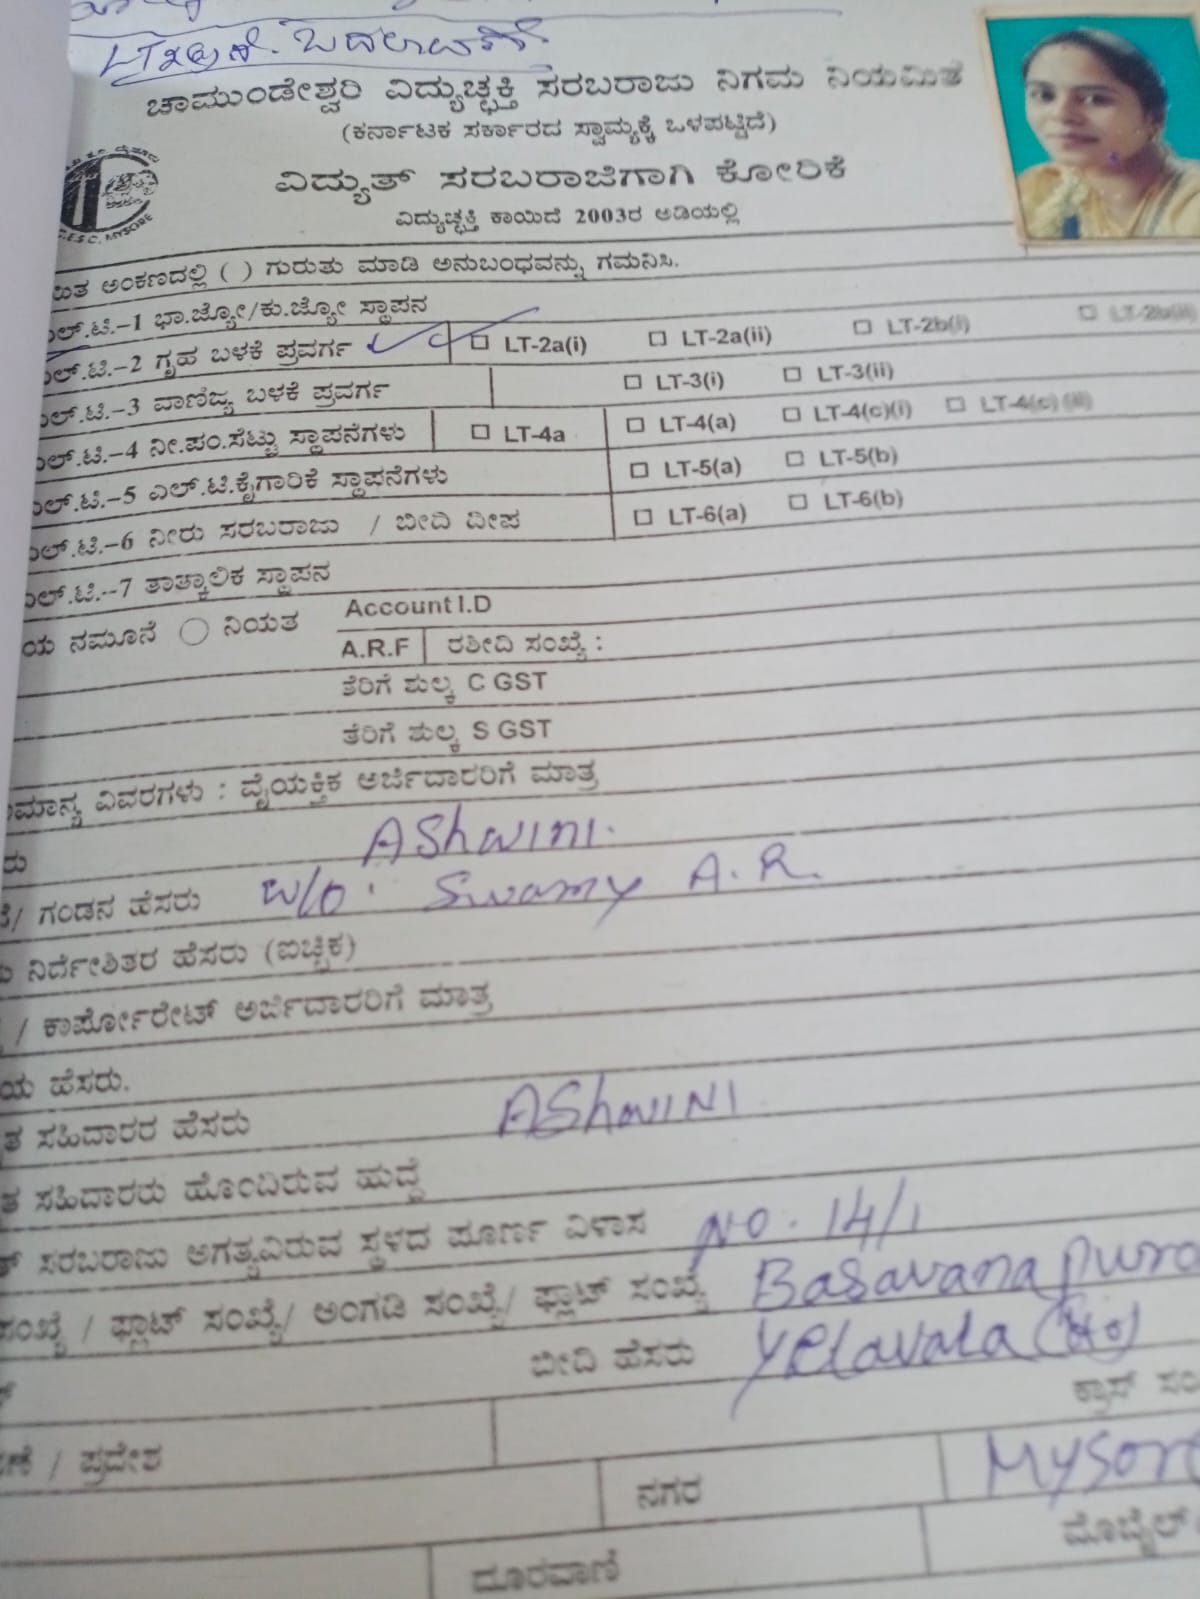 ಚಾಮುಂಡೇಶ್ವರಿ ವಿದ್ಯುಚ್ಛಕ್ತಿ ಸರಬರಾಜು ನಿಗಮ ನಿಯಮಿತ
(ಕರ್ನಾಟಕ ಸರ್ಕಾರದ ಸ್ವಾಮ್ಯಕ್ಕೆ ಒಳಪಟ್ಟಿದೆ)
C.E.S.C. MYSORE
ವಿದ್ಯುತ್ ಸರಬರಾಜಿಗಾಗಿ ಕೋರಿಕೆ
ವಿದ್ಯುಚ್ಛಕ್ತಿ ಕಾಯಿದೆ 2003ರ ಅಡಿಯಲ್ಲಿ
ಅಂಕಣದಲ್ಲಿ ( ) ಗುರುತು ಮಾಡಿ ಅನುಬಂಧವನ್ನು ಗಮನಿಸಿ.
ಎಲ್.ಟಿ.-1 ಭಾ.ಜ್ಯೋ/ಕು.ಜ್ಯೋ ಸ್ಥಾಪನ
ಎಲ್.ಟಿ.-2 ಗೃಹ ಬಳಕೆ ಪ್ರವರ್ಗ LT-2a(i) LT-2a(ii) LT-2b(i) LT-2b(ii)
ಎಲ್.ಟಿ.-3 ವಾಣಿಜ್ಯ ಬಳಕೆ ಪ್ರವರ್ಗ LT-3(i) LT-3(ii)
ಎಲ್.ಟಿ.-4 ನೀ.ಪಂ.ಸೆಟ್ಟು ಸ್ಥಾಪನೆಗಳು LT-4a LT-4(a) LT-4(c)(i) LT-4(c)(ii)
ಎಲ್.ಟಿ.-5 ಎಲ್.ಟಿ.ಕೈಗಾರಿಕೆ ಸ್ಥಾಪನೆಗಳು LT-5(a) LT-5(b)
ಎಲ್.ಟಿ.-6 ನೀರು ಸರಬರಾಜು / ಬೀದಿ ದೀಪ LT-6(a) LT-6(b)
ಎಲ್.ಟಿ.-7 ತಾತ್ಕಾಲಿಕ ಸ್ಥಾಪನ
ಯ ನಮೂನೆ ನಿಯತ Account I.D
A.R.F ರಶೀದಿ ಸಂಖ್ಯೆ :
ತೆರಿಗೆ ಶುಲ್ಕ C GST
ತೆರಿಗೆ ಶುಲ್ಕ S GST
ಮಾನ್ಯ ವಿವರಗಳು : ವೈಯಕ್ತಿಕ ಅರ್ಜಿದಾರರಿಗೆ ಮಾತ್ರ
ರು AShwini.
/ ಗಂಡನ ಹೆಸರು w/o. Swamy A.R.
ನಿರ್ದೇಶಿತರ ಹೆಸರು (ಐಚ್ಚಿಕ)
/ ಕಾರ್ಪೋರೇಟ್ ಅರ್ಜಿದಾರರಿಗೆ ಮಾತ್ರ
ಯ ಹೆಸರು.
ತ ಸಹಿದಾರರ ಹೆಸರು AShwINI
ತ ಸಹಿದಾರರು ಹೊಂದಿರುವ ಹುದ್ದೆ
ತ್ ಸರಬರಾಜು ಅಗತ್ಯವಿರುವ ಸ್ಥಳದ ಪೂರ್ಣ ವಿಳಾಸ NO. 14/1
ಸಂಖ್ಯೆ / ಫ್ಲಾಟ್ ಸಂಖ್ಯೆ/ ಅಂಗಡಿ ಸಂಖ್ಯೆ/ ಫ್ಲಾಟ್ ಸಂಖ್ಯೆ Basavanapura
ಬೀದಿ ಹೆಸರು Yelavala
ಕ್ರಾಸ್ ಸಂ
/ ಪ್ರದೇಶ
ನಗರ Mysore
ದೂರವಾಣಿ ಮೊಬೈಲ್